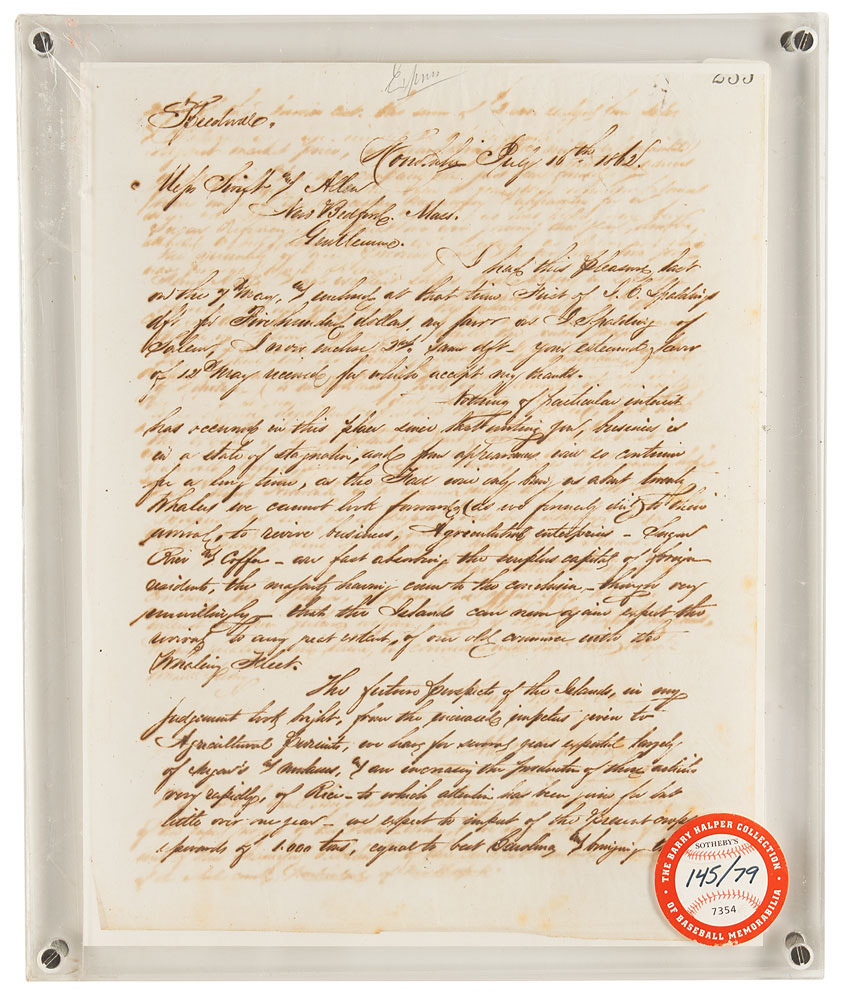 Honolulu July 16th 1862.
Messrs Swift & Allen
New Bedford. Mass.
Gentlemen.
I had this pleasure last
on the 7th May, & enclosed at that time First of
dft for Five hundred dollars, in favor on J. Spalding of
Salem, I now enclose 2nd. same dft - your esteemed favor
of 12th May received, for which accept my thanks.
Nothing of particular interest
has occurred in this place since last writing you, business is
in a state of stagnation, and from appearances will so continue
for a long time, as the Fleet will only be, as about twenty
Whalers we cannot look forward (as we formerly did) to their
arrival, to revive business, Agricultural enterprises - Sugar
Rice & Coffee - are fast absorbing the surplus capital of foreign
residents, the majority having come to the conclusion, though very
unwillingly - that the Islands can never again expect the
revival to any great extent, of our old commerce with the
Whaling Fleet.
The future prospects of the Islands, in my
judgement look bright, from the increased impetus given to
Agricultural pursuits, we have for several years exported largely
of Sugars & Molasses, & are increasing the production of these articles
very rapidly, of Rice - to which attention has been given for but
little over one year - we expect to export of the present crop
upwards of 1.000 tons, equal to best Carolina & bringing
THE BARRY HALPER COLLECTION
SOTHEBY'S
145/79
7354
OF BASEBALL MEMORABILIA